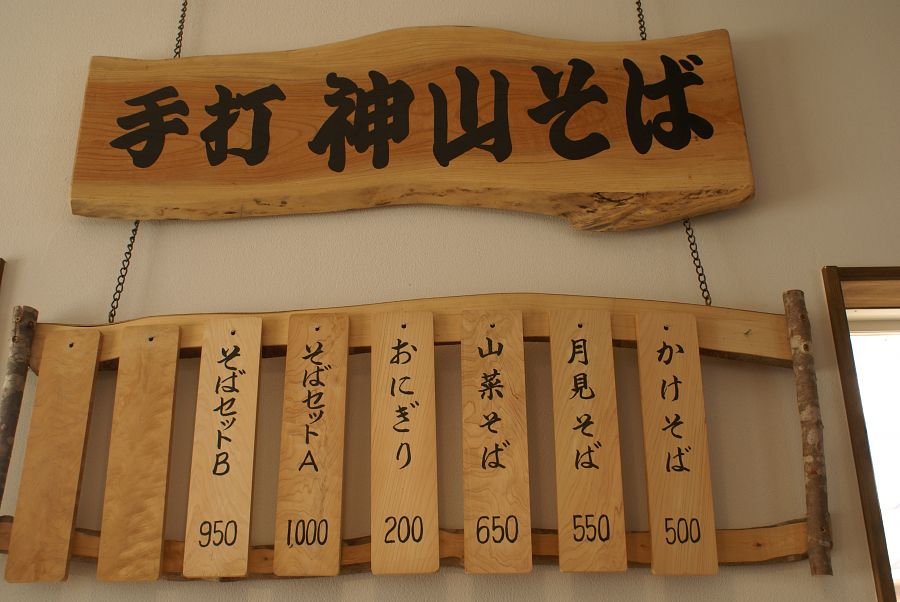 手打 神山そば
かけそば 500
月見そば 550
山菜そば 650
おにぎり 200
そばセットA 1,000
そばセットB 950